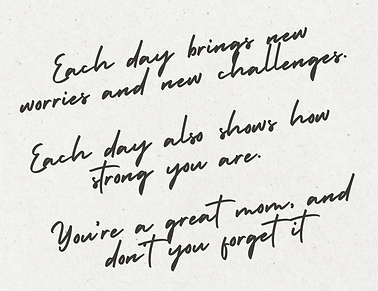 Each day brings new
worries and new challenges.
Each day also shows how
strong you are.
You're a great mom, and
don't you forget it